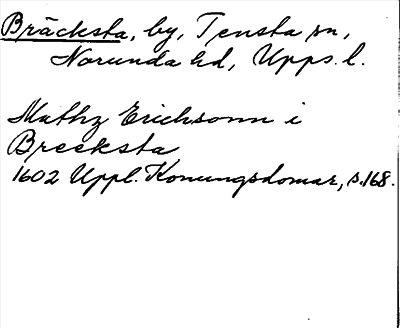 Bräcksta, by, Tensta sn,
Norunda hd, Upps. l.
Mathz Erichsonn i
Breeksta
1602 Uppl. Konungsdomar, s. 168.